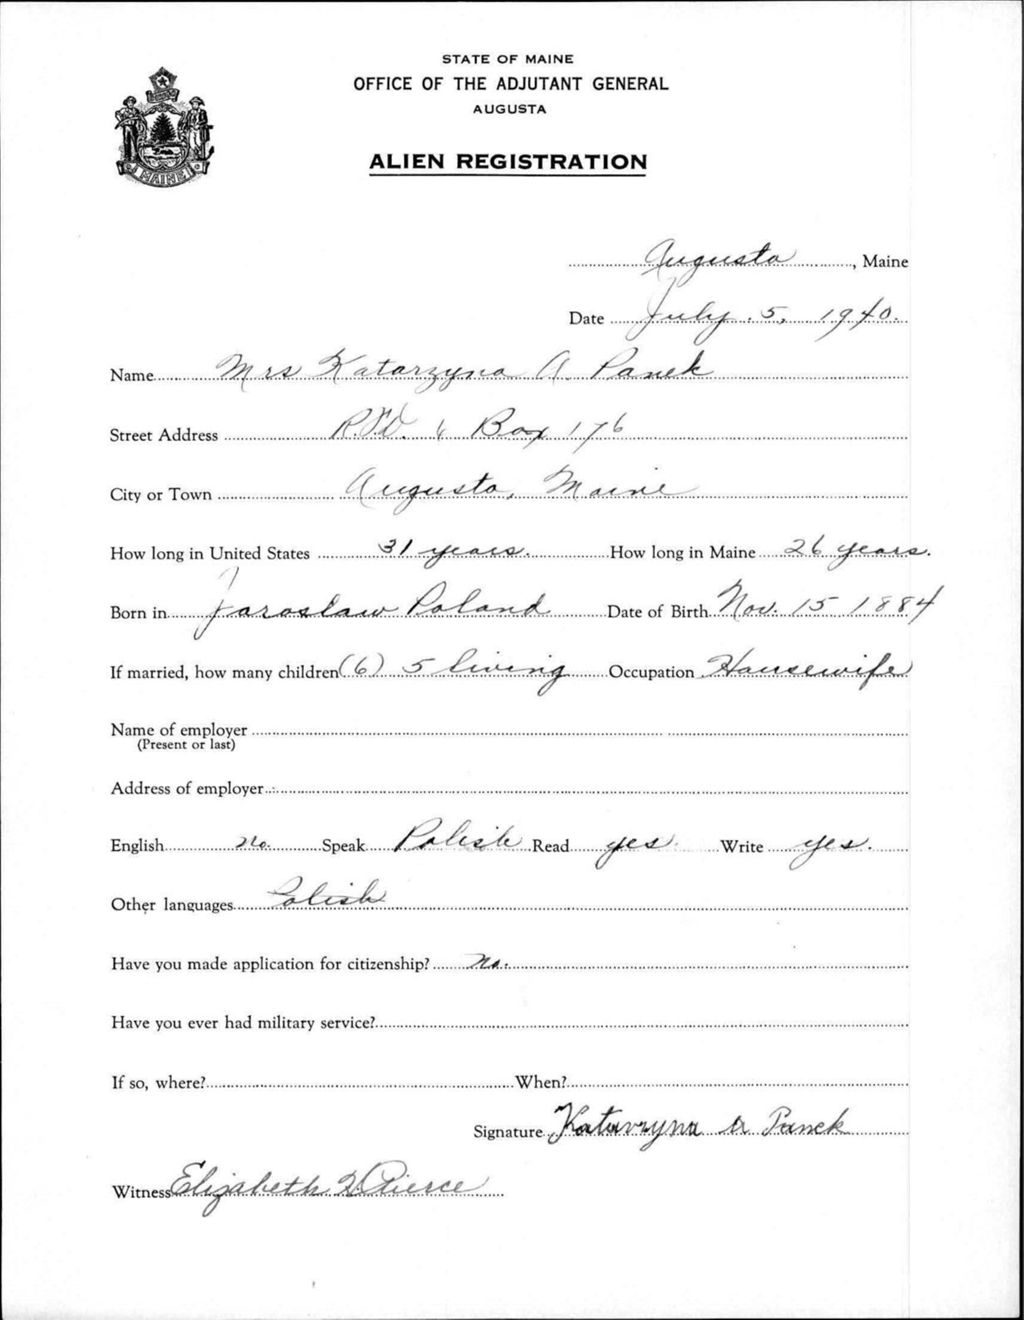 STATE OF MAINE
OFFICE OF THE ADJUTANT GENERAL
AUGUSTA
ALIEN REGISTRATION
MAINE
Augusta, Maine
Date July. 5, 1940.
Name Mrs Katarzyna A. Panek
Street Address R.F.D. Box 176
City or Town Augusta, Maine
How long in United States 31 years. How long in Maine 26 years.
Born in Jaroslaw Poland Date of Birth Nov. 15 1884
If married, how many children (6) 5 living Occupation Housewife
Name of employer
(Present or last)
Address of employer
English no. Speak Polish Read yes. Write yes.
Other languages Polish
Have you made application for citizenship? No.
Have you ever had military service?
If so, where? When?
Signature Katarzyna A Panek
Witness Elizabeth Pierce